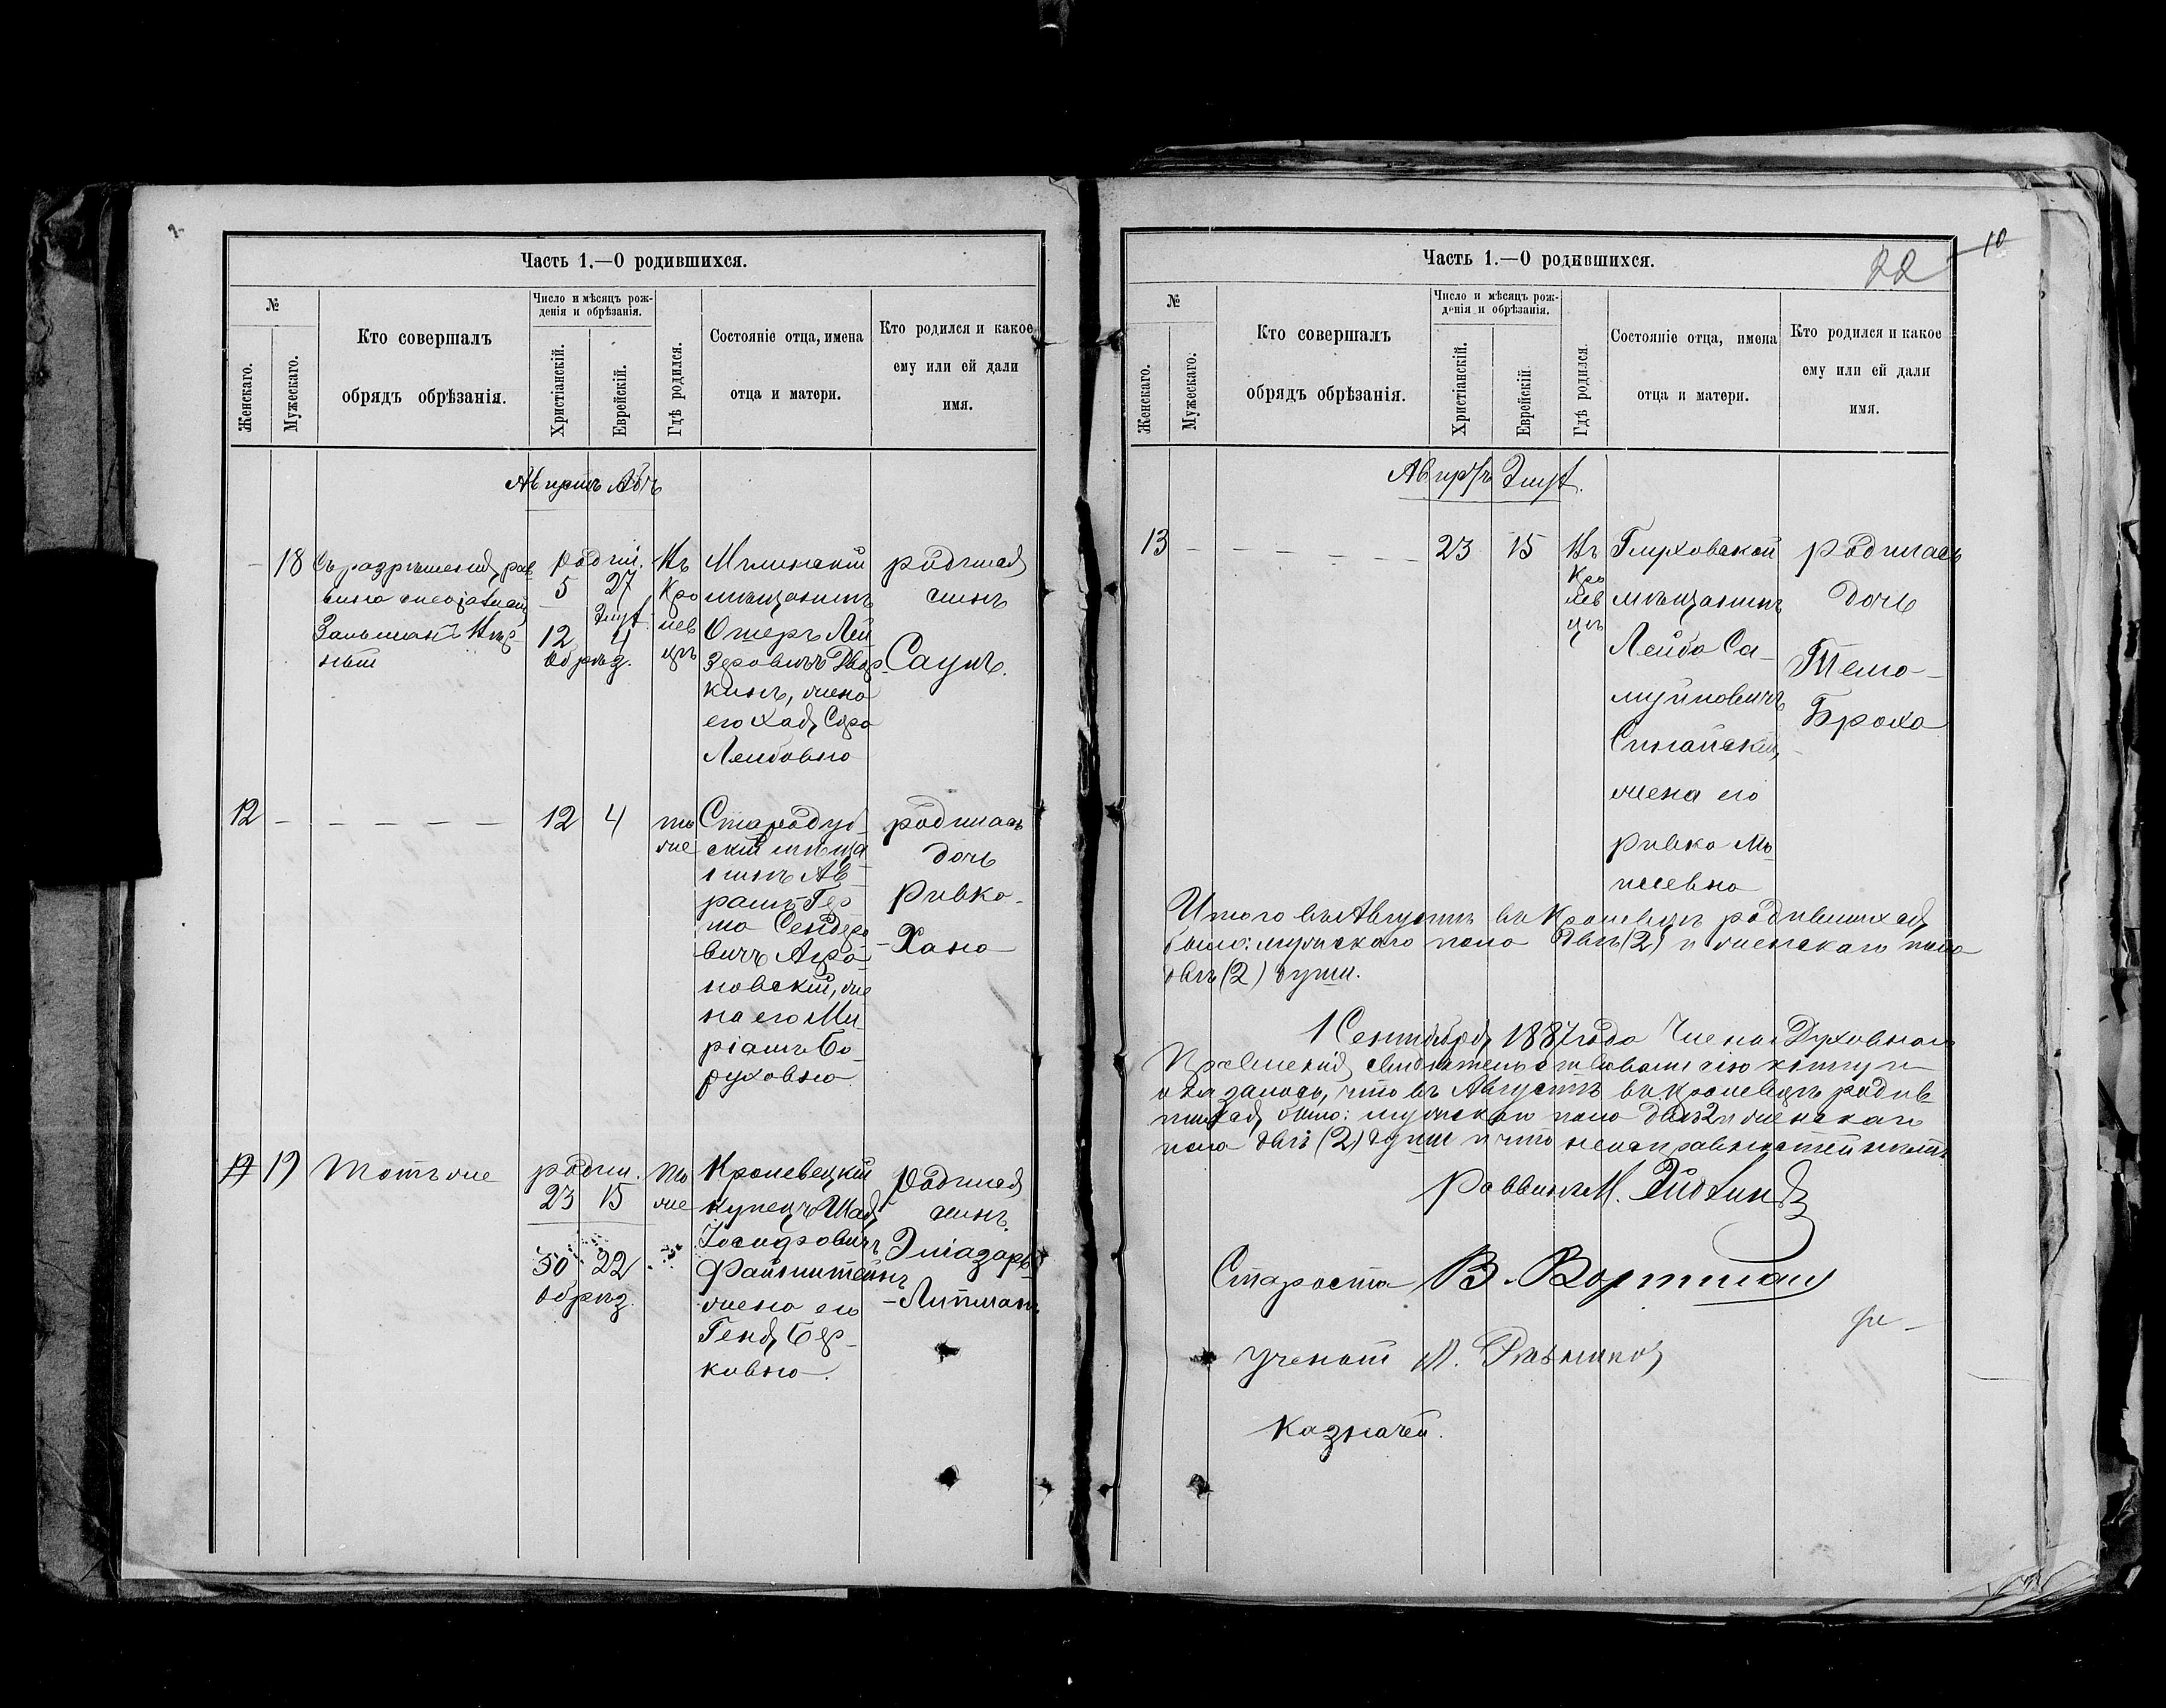 Часть 1.—О родившихся.
№
Женскаго.
Мужескаго.
Кто совершалъ
обрядъ обрѣзанія.
Число и мѣсяцъ рож-
денія и обрѣзанія.
Христіанскій.
Еврейскій.
Гдѣ родился.
Состояніе отца, имена
отца и матери.
Кто родился и какое
ему или ей дали
имя.
Августъ Абъ
18
Съ разрѣшенія рав
вина
Зальманъ
родил.
5 27
Элулъ
12 4
Обрѣз.
Въ
Кро
лев
цѣ
Мглинскій
мѣщанинъ
Ошеръ Лей
зеровичъ Двор
кинъ, жена
его Хая Сора
Лейбовна
родился
сынъ
Саулъ.
12
— — — — —
12 4
то
же
Стародуб
скій мѣща
нинъ Ав
рамъ Гер
шо Сендеро
вичъ Агра
новскій, же
на его Ми
ріамъ Бо
руховна
родилась
дочь
Ривка-
-Хана
19
Тотъ же
родил.
23 15
30 22
Обрѣз.
То
же
Кролевецкій
купецъ Шая
Іосифовичъ
Файнштейнъ
жена его
Геня Бер
ковна.
Родился
сынъ.
Эліазаръ-
-Липманъ
10
22
Часть 1.—О родившихся.
№
Женскаго.
Мужескаго.
Кто совершалъ
обрядъ обрѣзанія.
Число и мѣсяцъ рож-
денія и обрѣзанія.
Христіанскій.
Еврейскій.
Гдѣ родился.
Состояніе отца, имена
отца и матери.
Кто родился и какое
ему или ей дали
имя.
Августъ Элулъ.
13
— — — — —
23 15
Въ
Кро
лев
цѣ
Глуховской
мѣщанинъ
Лейба Са-
муйловичъ
Синайскій,
жена его
Ривка Мо
исеевна
родилась
дочь
Тема-
Броха
Итого въ Августѣ въ Кролевцѣ родившихся
было: мужскаго пола двѣ (2) и женскаго пола
двѣ (2) души.
1 Сентября 1887 года Члены Духовнаго
Правленія свидѣтельствовали сію книгу и
оказалось, что въ Августѣ въ Кролевцѣ родив
шихся было: мужскаго пола двѣ 2 и женскаго
пола двѣ (2) души и что неисправностей нѣтъ.
Раввинъ М.
Староста В. Вортман
Ученый
Казначей.